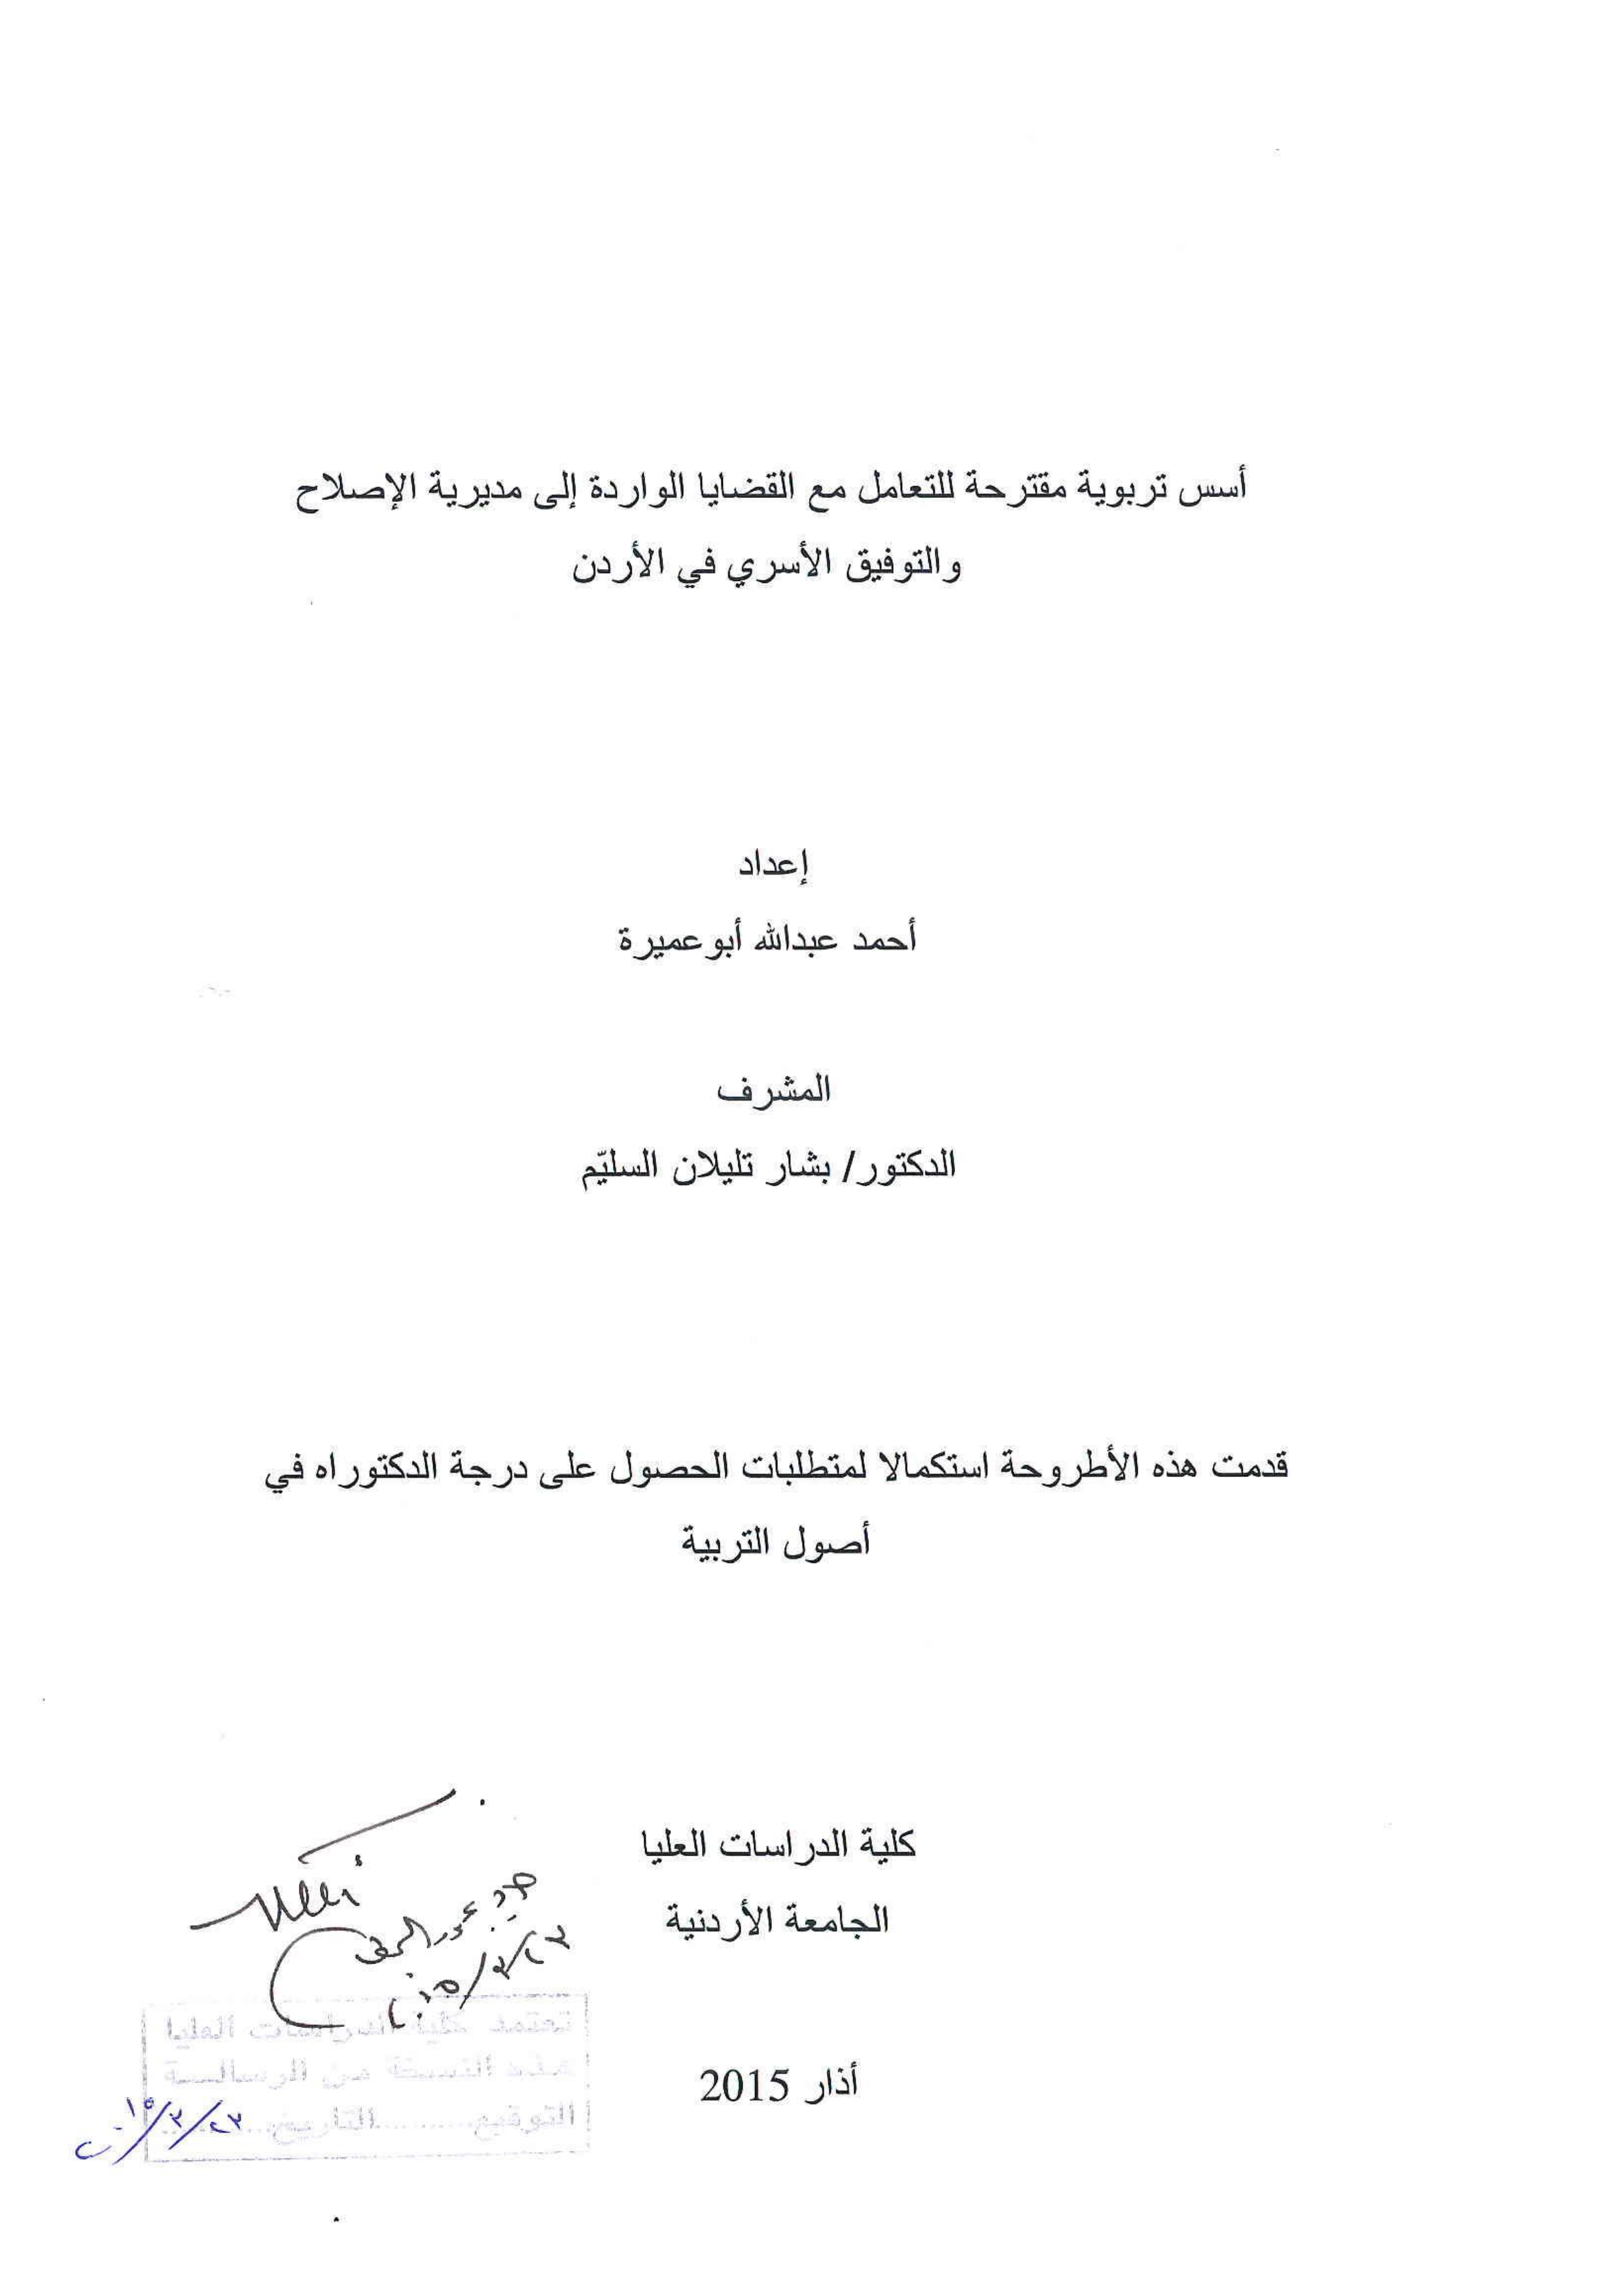 أسس تربوية مقترحة للتعامل مع القضايا الواردة إلى مديرية الإصلاح
والتوفيق الأسري في الأردن
إعداد
أحمد عبدالله أبوعميرة
المشرف
الدكتور/ بشار تليلان السليّم
قدمت هذه الأطروحة استكمالا لمتطلبات الحصول على درجة الدكتوراه في
أصول التربية
كلية الدراسات العليا
الجامعة الأردنية
٢٠١٥/٣/٢٣
تعتمد كلية الدراسات العليا
هذه النسخة من الرسالــة
التوقيع..........التاريخ........
٢٠١٥/٣/٢٣
أذار 2015